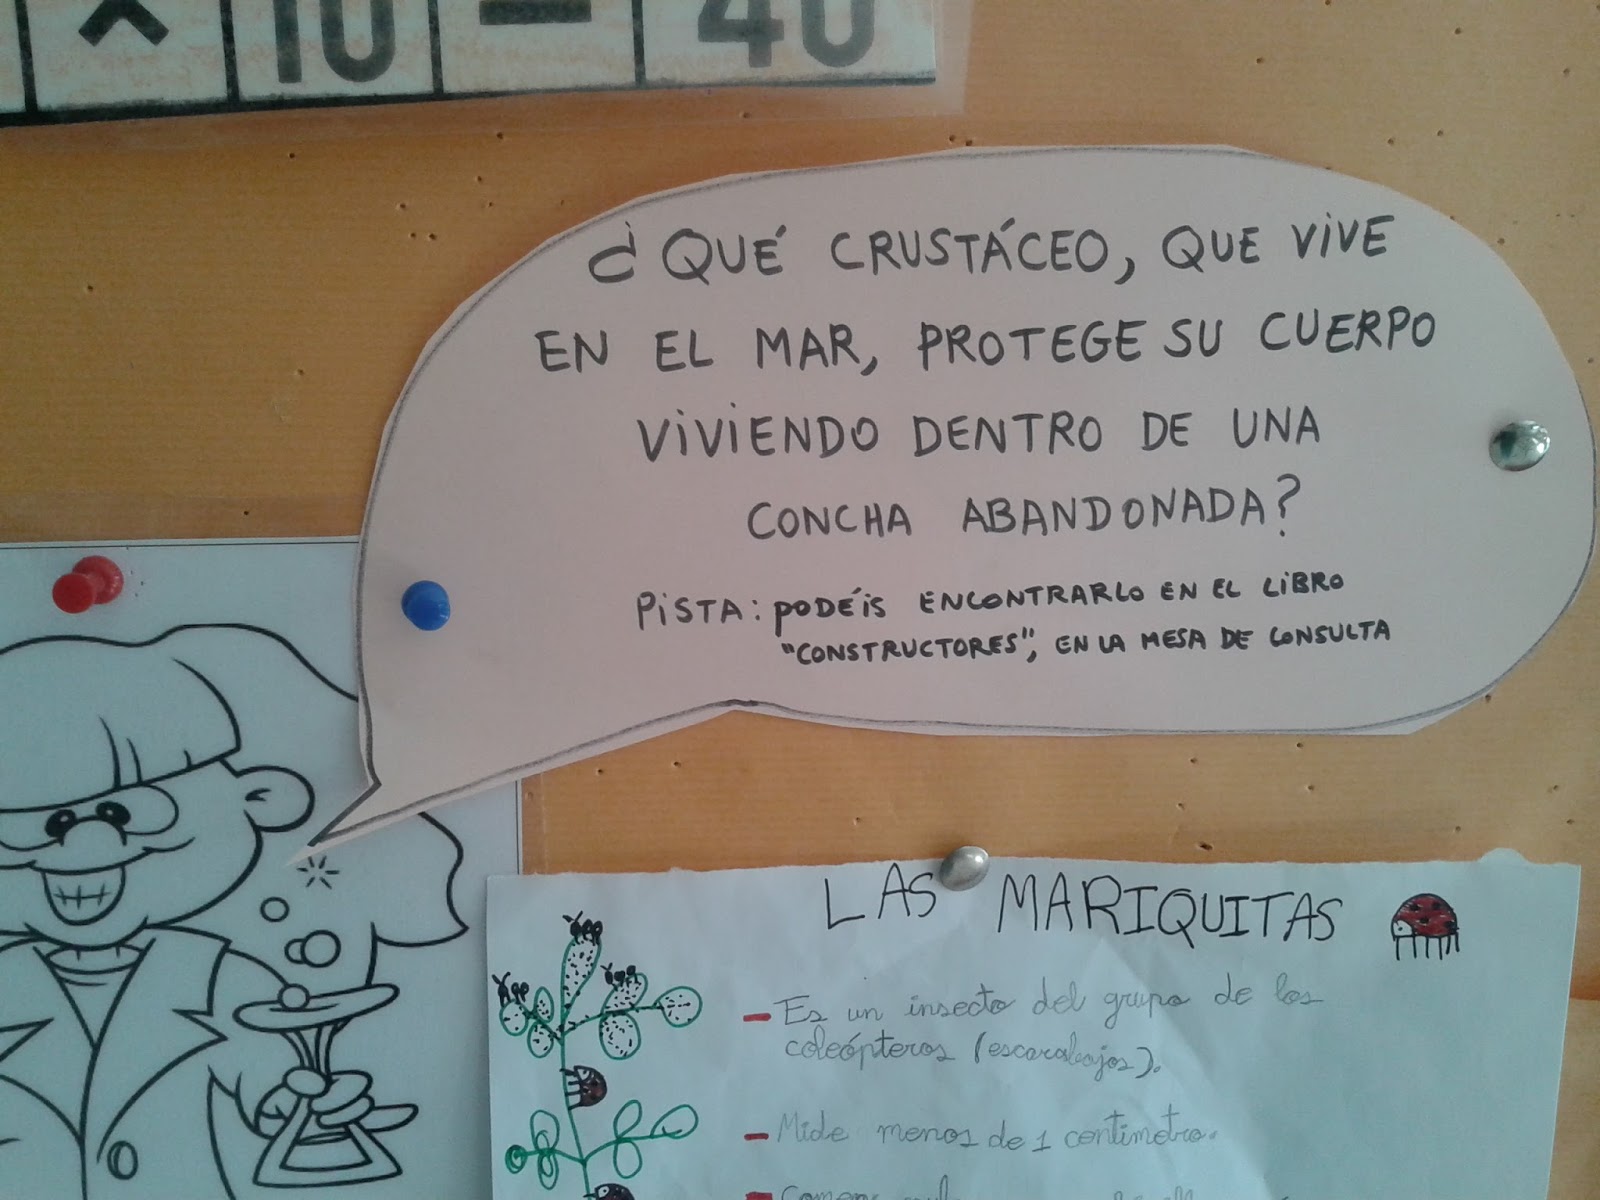 × 10 = 40
¿QUÉ CRUSTÁCEO, QUE VIVE
EN EL MAR, PROTEGE SU CUERPO
VIVIENDO DENTRO DE UNA
CONCHA ABANDONADA?
PISTA: PODÉIS ENCONTRARLO EN EL LIBRO
"CONSTRUCTORES", EN LA MESA DE CONSULTA
LAS MARIQUITAS
- Es un insecto del grupo de los
coleópteros (escarabajos).
- Mide menos de 1 centimetro.